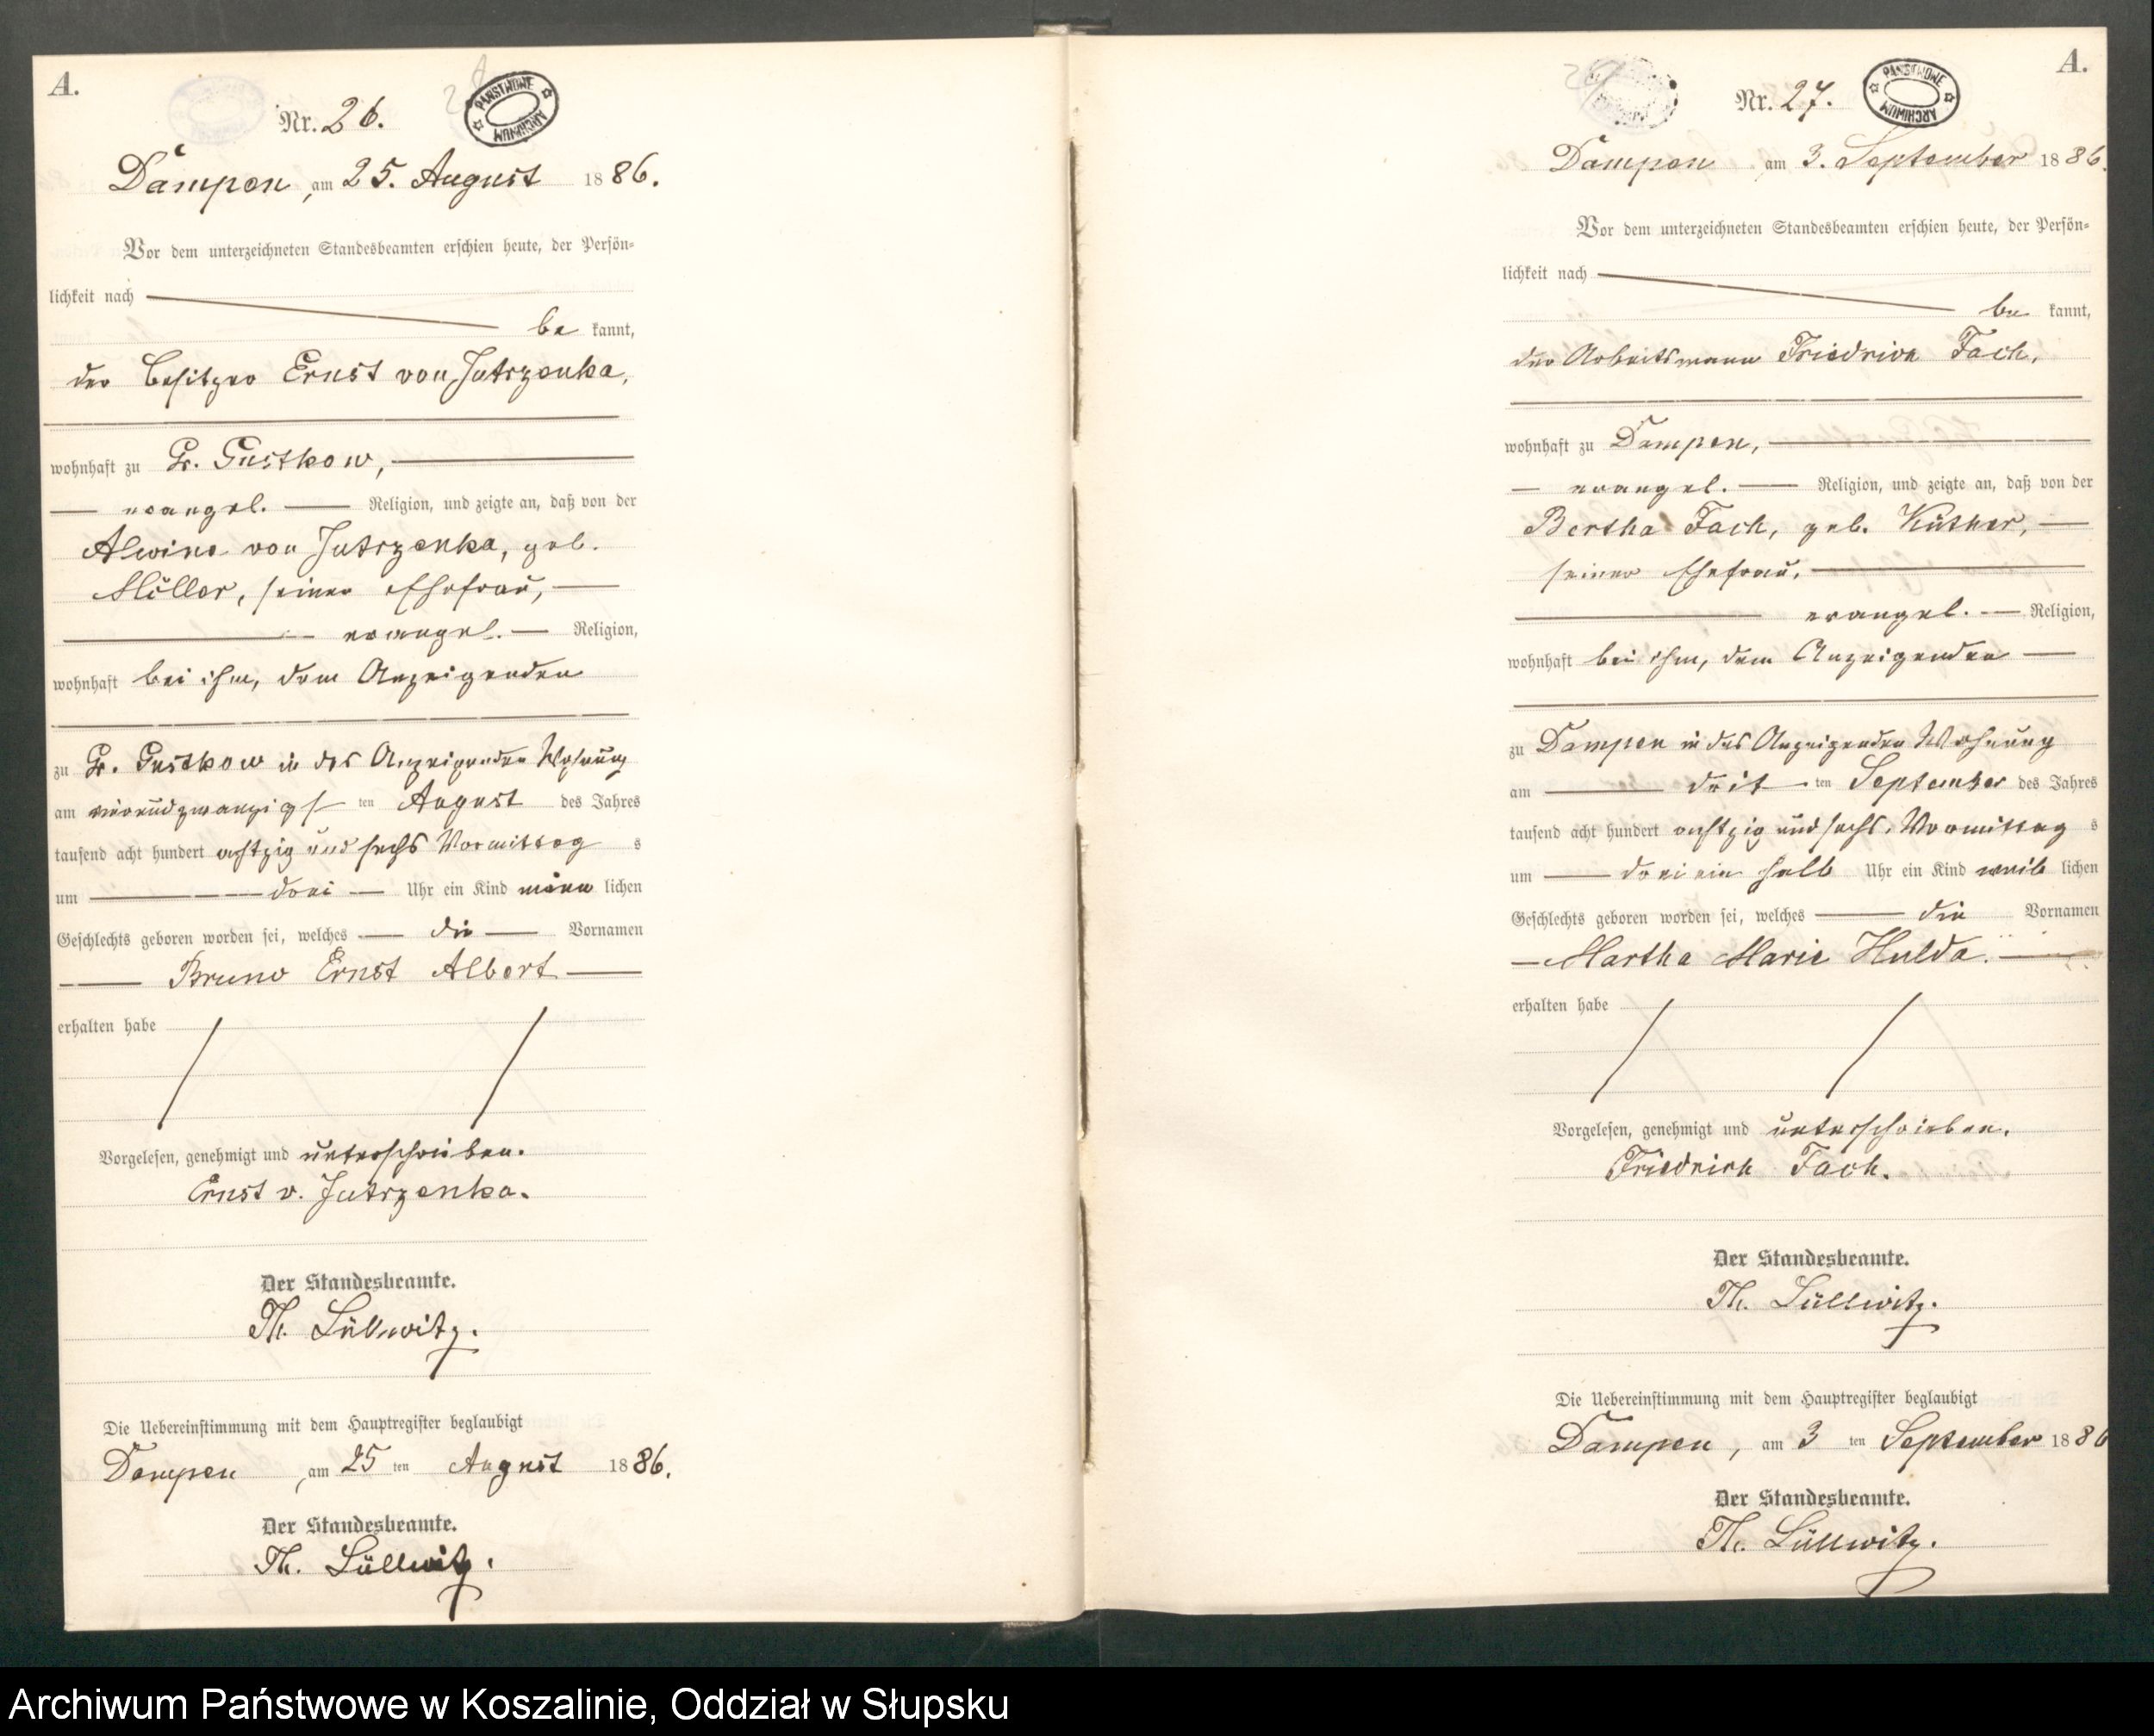 A.
Nr. 26.
PAŃSTWOWE ARCHIWUM
Dampen, am 25. August 1886.
Vor dem unterzeichneten Standesbeamten erschien heute, der Persön-
lichkeit nach
be kannt,
der Besitzer Ernst von Jutrzenka,
wohnhaft zu Gr. Gustkow,
evangel. Religion, und zeigte an, daß von der
Alwine von Jutrzenka, geb.
Möller, seiner Ehefrau,
evangel. Religion,
wohnhaft bei ihm, dem Anzeigenden
zu Gr. Gustkow in des Anzeigenden Wohnung
am vierundzwanzigsten August des Jahres
tausend acht hundert achtzig und sechs Vormittag s
um drei Uhr ein Kind männ lichen
Geschlechts geboren worden sei, welches die Vornamen
Bruno Ernst Albert
erhalten habe
Vorgelesen, genehmigt und unterschrieben.
Ernst v. Jutrzenka.
Der Standesbeamte.
Th. Lüllwitz.
Die Uebereinstimmung mit dem Hauptregister beglaubigt
Dampen, am 25 ten August 1886.
Der Standesbeamte.
Th. Lüllwitz.
A.
Nr. 27.
PAŃSTWOWE ARCHIWUM
Dampen am 3. September 1886.
Vor dem unterzeichneten Standesbeamten erschien heute, der Persön-
lichkeit nach
be kannt,
der Arbeitsmann Friedrich Fach,
wohnhaft zu Dampen,
evangel. Religion, und zeigte an, daß von der
Bertha Fach, geb. Küther,
seiner Ehefrau,
evangel. Religion,
wohnhaft bei ihm, dem Anzeigenden
zu Dampen in des Anzeigenden Wohnung
am dritten September des Jahres
tausend acht hundert achtzig und sechs, Vormittag s
um drei ein halb Uhr ein Kind weib lichen
Geschlechts geboren worden sei, welches die Vornamen
Martha Marie Hulda.
erhalten habe
Vorgelesen, genehmigt und unterschrieben.
Friedrich Fach.
Der Standesbeamte.
Th. Lüllwitz.
Die Uebereinstimmung mit dem Hauptregister beglaubigt
Dampen, am 3 ten September 1886
Der Standesbeamte.
Th. Lüllwitz.
Archiwum Państwowe w Koszalinie, Oddział w Słupsku